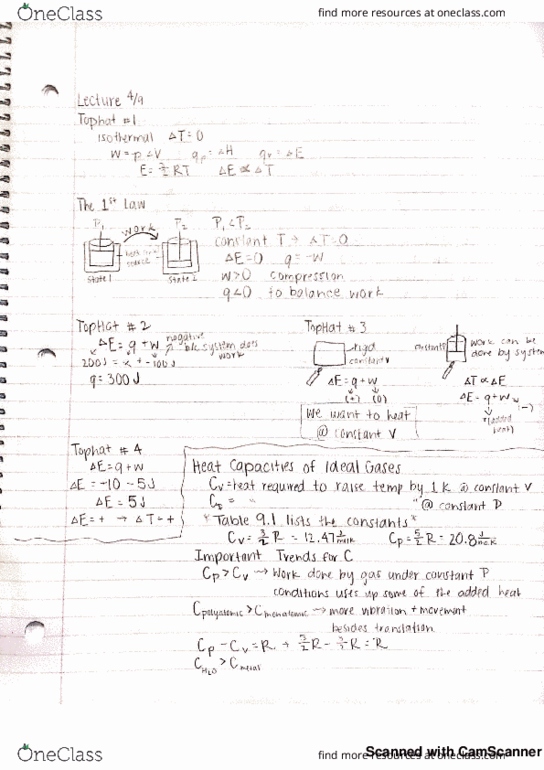 OneClass
find more resources at oneclass.com
Lecture 4/9
Tophat #1
isothermal ΔT=0
W=pΔV qp=ΔH qv=ΔE
E=3/2 RT ΔE∝ΔT
The 1st Law
P1 work P2
State 1 State 2
P1<P2
constant T → ΔT=0
ΔE=0 q=-W
W>0 compression
q<0 to balance work
TopHat #2
ΔE=q+w negative
b/c system does
work
200J = x + -100J
q=300J
TopHat #3
rigid
constant V
ΔE=q+w
(+) (0)
We want to heat
@ constant V
constant P
work can be
done by system
ΔT∝ΔE
ΔE=q+w
(-)
(added
heat)
Tophat #4
ΔE=q+w
ΔE=-10 -5J
ΔE=5J
ΔE=+ → ΔT=+
Heat Capacities of Ideal Gases
Cv=heat required to raise temp by 1K @ constant V
= " " @ constant P
*Table 9.1 lists the constants*
Cv=3/2 R = 12.47 J/molK Cp=5/2 R = 20.8 J/molK
Important Trends for C
Cp>Cv → Work done by gas under constant P
conditions uses up some of the added heat
Cpolyatomic > Cmonatomic → more vibration + movement
besides translation
Cp - Cv = R → 5/2R - 3/2R = R
CH2O > Cmetal
OneClass
find more resources at oneclass.com
Scanned with CamScanner